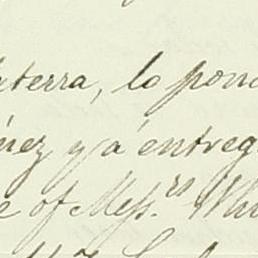 terra, lo pond
nez y á entreg
e of Mess.rs Wh